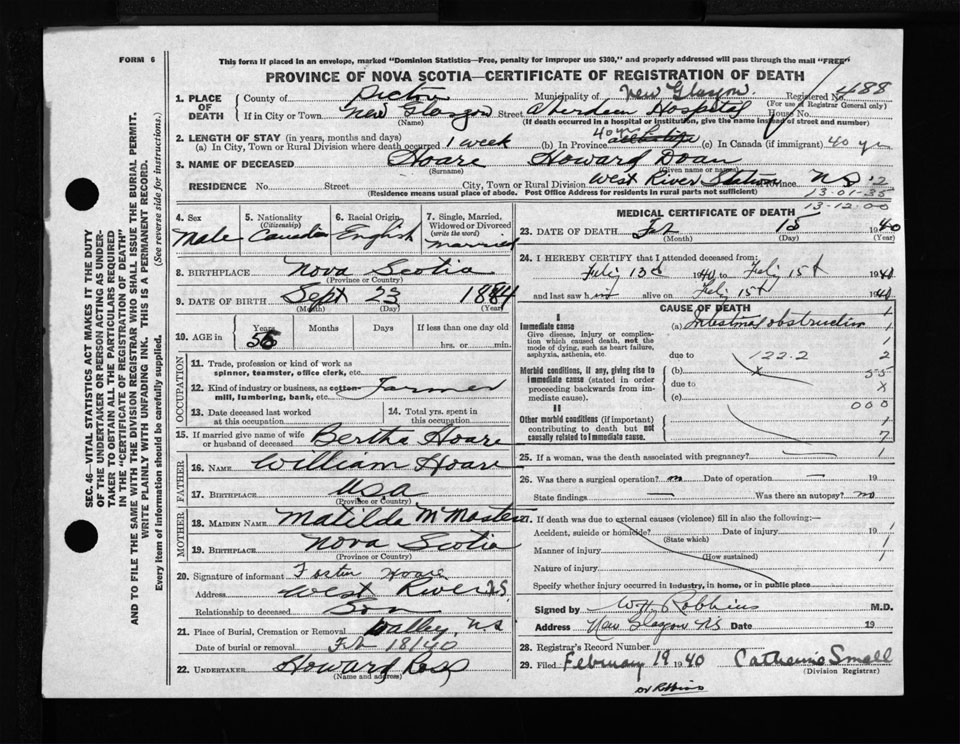 FORM 6
This form if placed in an envelope, marked "Dominion Statistics—Free, penalty for improper use $300," and properly addressed will pass through the mail "FREE"
PROVINCE OF NOVA SCOTIA—CERTIFICATE OF REGISTRATION OF DEATH
SEC. 46—VITAL STATISTICS ACT MAKES IT THE DUTY
OF THE UNDERTAKER OR PERSON ACTING AS UNDER-
TAKER TO OBTAIN ALL THE PARTICULARS REQUIRED
IN THE "CERTIFICATE OF REGISTRATION OF DEATH"
AND TO FILE THE SAME WITH THE DIVISION REGISTRAR WHO SHALL ISSUE THE BURIAL PERMIT.
WRITE PLAINLY WITH UNFADING INK. THIS IS A PERMANENT RECORD.
Every item of information should be carefully supplied. (See reverse side for instructions.)
1. PLACE OF DEATH County of Pictou Municipality of New Glasgow Registered No. 488
(For use of Registrar General only)
If in City or Town New Glasgow Street Aberdeen Hospital House No.
(Name) (If death occurred in a hospital or institution, give the name instead of street and number)
2. LENGTH OF STAY (in years, months and days)
(a) In City, Town or Rural Division where death occurred 1 week (b) In Province 40 yrs (c) In Canada (if immigrant) 40 yrs
3. NAME OF DECEASED Hoare Howard Doan
(Surname) (Given name or names)
RESIDENCE No. Street City, Town or Rural Division West River Station Province N S
(Residence means usual place of abode. Post Office Address for residents in rural parts not sufficient)
13-01-35
13-12-00
4. Sex Male
5. Nationality (Citizenship) Canadian
6. Racial Origin English
7. Single, Married, Widowed or Divorced (write the word) married
8. BIRTHPLACE Nova Scotia
(Province or Country)
9. DATE OF BIRTH Sept 23 1884
(Month) (Day) (Yrs.)
10. AGE in Years Months Days If less than one day old
56 hrs. or min.
OCCUPATION
11. Trade, profession or kind of work as spinner, teamster, office clerk, etc.
12. Kind of industry or business, as cotton-mill, lumbering, bank, etc. Farmer
13. Date deceased last worked at this occupation
14. Total yrs. spent in this occupation
15. If married give name of wife or husband of deceased Bertha Hoare
FATHER
16. NAME William Hoare
17. BIRTHPLACE U.S.A
(Province or Country)
MOTHER
18. MAIDEN NAME Matilda McMaster
19. BIRTHPLACE Nova Scotia
(Province or Country)
20. Signature of informant Foster Hoare
Address West River N.S.
Relationship to deceased Son
21. Place of Burial, Cremation or Removal N.S
Date of burial or removal Feb 18/40
22. UNDERTAKER Howard Ross
(Name and address)
MEDICAL CERTIFICATE OF DEATH
23. DATE OF DEATH Feb 15 1940
(Month) (Day) (Year)
24. I HEREBY CERTIFY that I attended deceased from:
Feb'y 13th 1940 to Feb'y 15th 1940
and last saw him alive on Feb'y 15th 1940
CAUSE OF DEATH
I
Immediate cause (a) Intestinal obstruction
Give disease, injury or complication which caused death, not the mode of dying, such as heart failure, asphyxia, asthenia, etc.
due to 122.2
Morbid conditions, if any, giving rise to immediate cause (stated in order proceeding backwards from immediate cause). (b) x
due to
(c)
II
Other morbid conditions (if important) contributing to death but not causally related to immediate cause.
1
1
2
55
x
000
1
7
1
25. If a woman, was the death associated with pregnancy? —
26. Was there a surgical operation? no Date of operation —
State findings — Was there an autopsy? no
27. If death was due to external causes (violence) fill in also the following:—
Accident, suicide or homicide? Date of injury 19
(State which)
Manner of injury
(How sustained)
Nature of injury
Specify whether injury occurred in industry, in home, or in public place
Signed by W H Robbins M.D.
Address New Glasgow NS Date 19
28. Registrar's Record Number
29. Filed February 19 1940 Catherine Small
(Division Registrar)
Dr Robbins